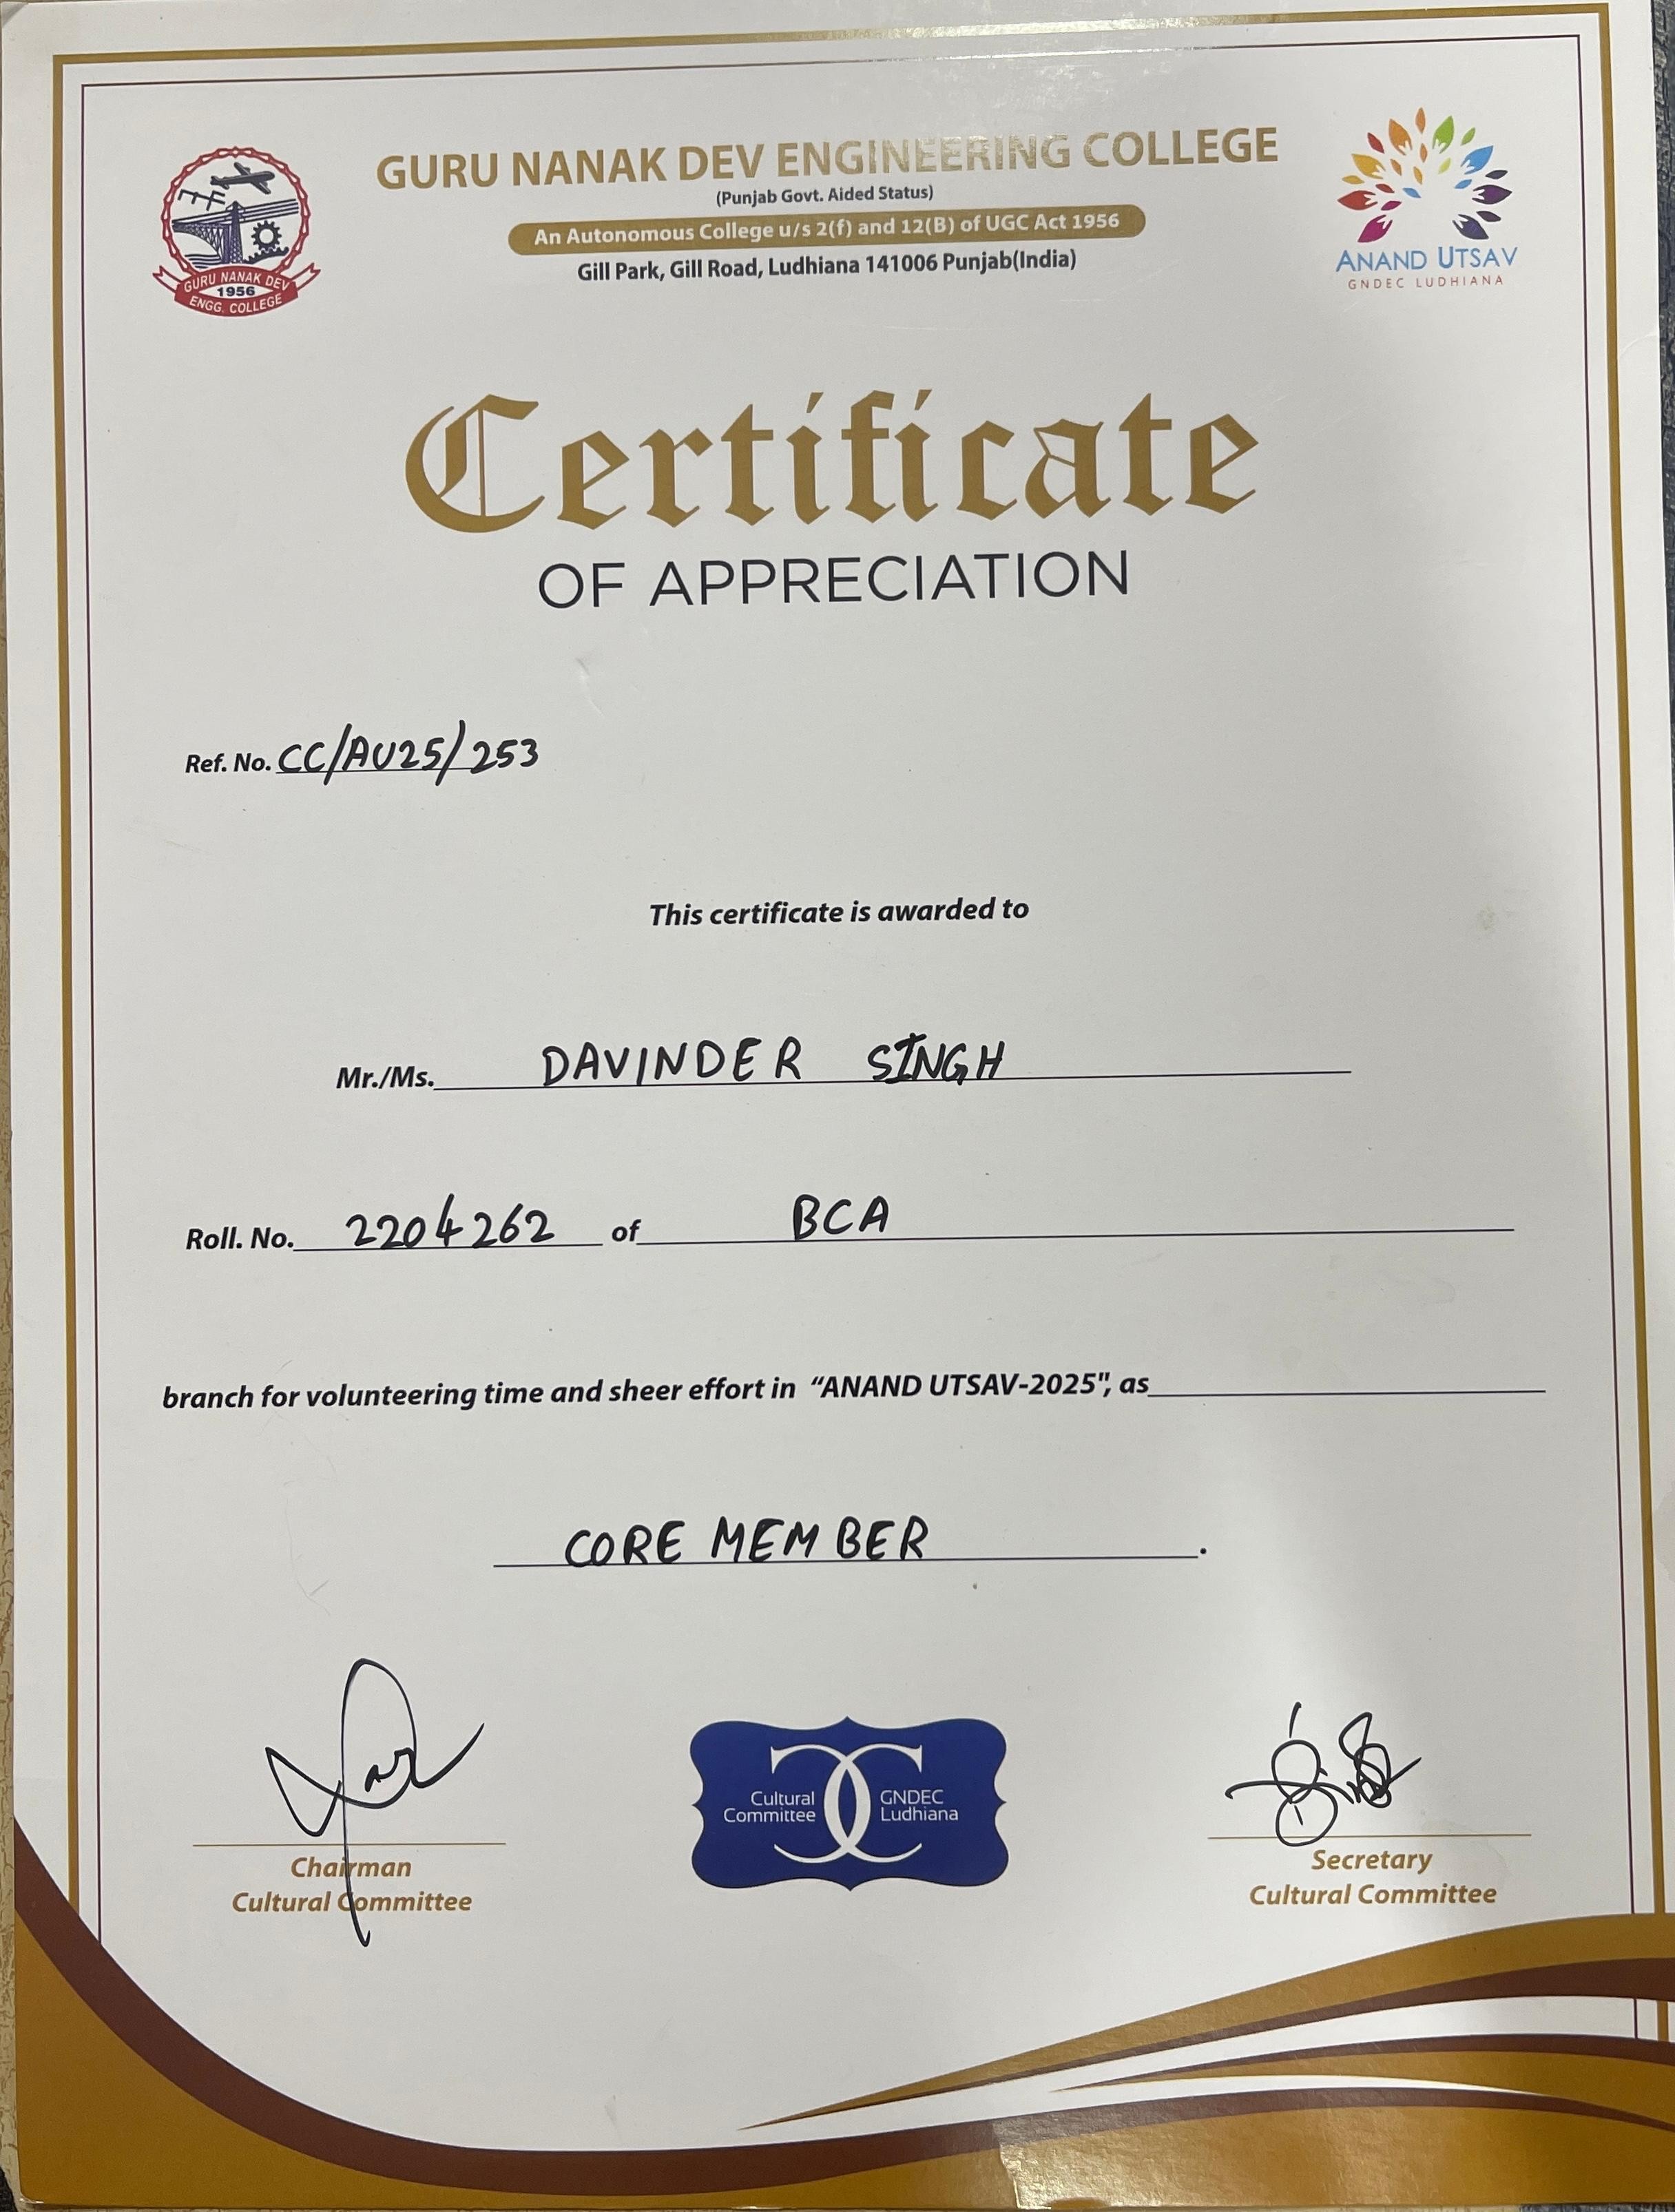 GURU NANAK DEV ENGINEERING COLLEGE
(Punjab Govt. Aided Status)
An Autonomous College u/s 2(f) and 12(B) of UGC Act 1956
Gill Park, Gill Road, Ludhiana 141006 Punjab(India)
GURU NANAK DEV
1956
ENGG. COLLEGE
ANAND UTSAV
GNDEC LUDHIANA
Certificate
OF APPRECIATION
Ref. No. CC/AU25/253
This certificate is awarded to
Mr./Ms. DAVINDER SINGH
Roll. No. 2204262 of BCA
branch for volunteering time and sheer effort in “ANAND UTSAV-2025", as
CORE MEMBER .
Chairman
Cultural Committee
Cultural Committee
GNDEC Ludhiana
Secretary
Cultural Committee